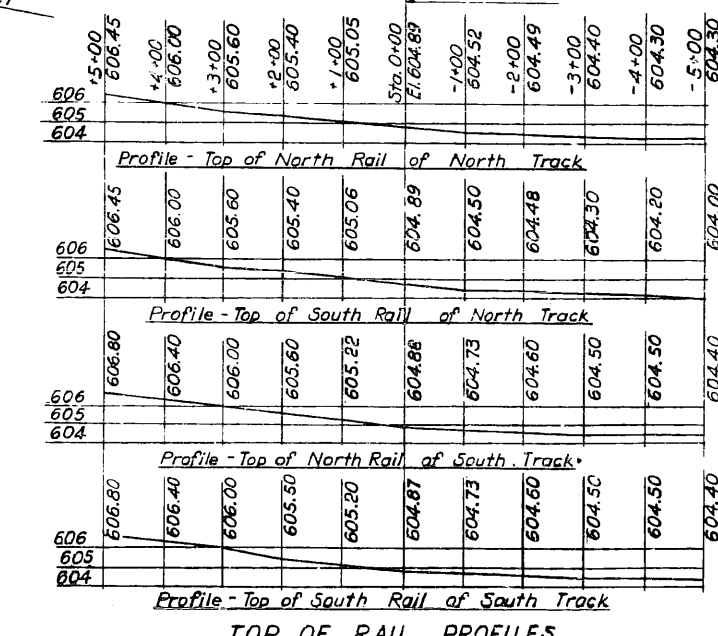 +5+00 +4+00 +3+00 +2+00 +1+00 Sta. 0+00 -1+00 -2+00 -3+00 -4+00 -5+00
606.45 606.00 605.60 605.40 605.05 El. 604.89 604.52 604.49 604.40 604.30 604.30
606
605
604
Profile - Top of North Rail of North Track
606.45 606.00 605.60 605.40 605.06 604.89 604.50 604.48 604.30 604.20 604.00
606
605
604
Profile - Top of South Rail of North Track
606.80 606.40 606.00 605.60 605.22 604.88 604.73 604.60 604.50 604.50 604.40
606
605
604
Profile - Top of North Rail of South Track
606.80 606.40 606.00 605.50 605.20 604.87 604.73 604.60 604.50 604.50 604.40
606
605
604
Profile - Top of South Rail of South Track
TOP OF RAIL PROFILES